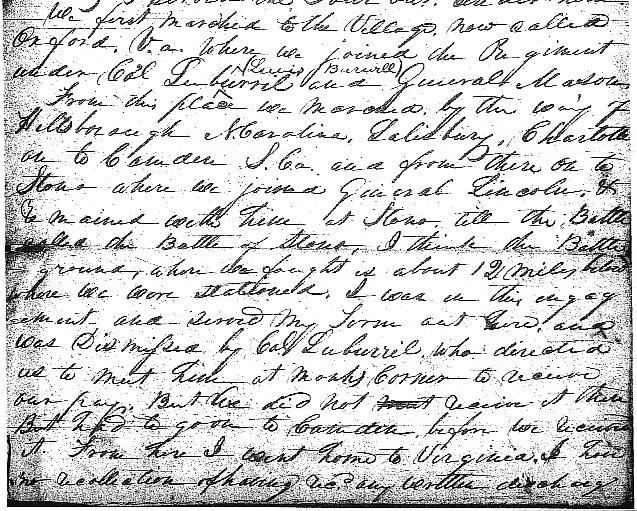 we first marched to the Village, now called
Oxford, V.a. where we joined the Regiment
(Lewis Burwell)
under Col Luburril and General Mason
From this place we marched by the way of
Hillsborough N Carolina, Salisbury, Charlotte
on to Camden S. Ca. and from there on to
Stono where we joined General Lincoln, &
remained with him at Stono till the Battle
called the Battle of Stono, I think the Battle
ground, where we fought is about 12 miles below
where we were stationed. I was in this engag
ement, and served my Term out here, and
was Dismissed by Col Luburril, who directed
us to meet him at Monks Corner to receive
our pay. But We did not meet receive it there
But had to go on to Camden, before we received
it. From here I went home to Virginia. I have
no recollection of having recd any written discharge